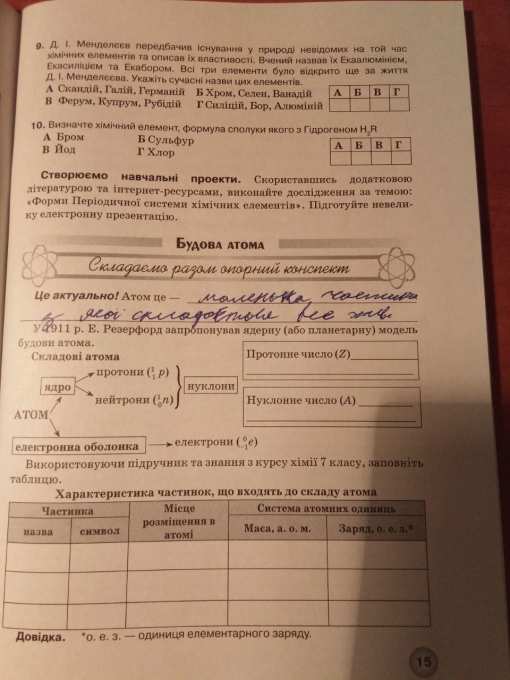 9. Д. І. Менделєєв передбачив існування у природі невідомих на той час
хімічних елементів та описав їх властивості. Вчений назвав їх Екаалюмінієм,
Екасиліцієм та Екабором. Всі три елементи було відкрито ще за життя
Д. І. Менделєєва. Укажіть сучасні назви цих елементів.
А Скандій, Галій, Германій Б Хром, Селен, Ванадій А Б В Г
В Ферум, Купрум, Рубідій Г Силіцій, Бор, Алюміній
10. Визначте хімічний елемент, формула сполуки якого з Гідрогеном H₂R
А Бром Б Сульфур А Б В Г
В Йод Г Хлор
Створюємо навчальні проекти. Скориставшись додатковою
літературою та інтернет-ресурсами, виконайте дослідження за темою:
«Форми Періодичної системи хімічних елементів». Підготуйте невели-
ку електронну презентацію.
Будова атома
Складаємо разом опорний конспект
Це актуально! Атом це — маленька частинка
з якої складається все
У 1911 р. Е. Резерфорд запропонував ядерну (або планетарну) модель
будови атома.
Складові атома
Протонне число (Z)
протони (¹₁p)
ядро
нуклони
нейтрони (¹₀n)
Нуклонне число (A)
АТОМ
електронна оболонка електрони (⁰₋₁e)
Використовуючи підручник та знання з курсу хімії 7 класу, заповніть
таблицю.
Характеристика частинок, що входять до складу атома
Частинка Місце розміщення в атомі Система атомних одиниць
назва символ Маса, а. о. м. Заряд, о. е. з.*
Довідка. *о. е. з. — одиниця елементарного заряду.
15